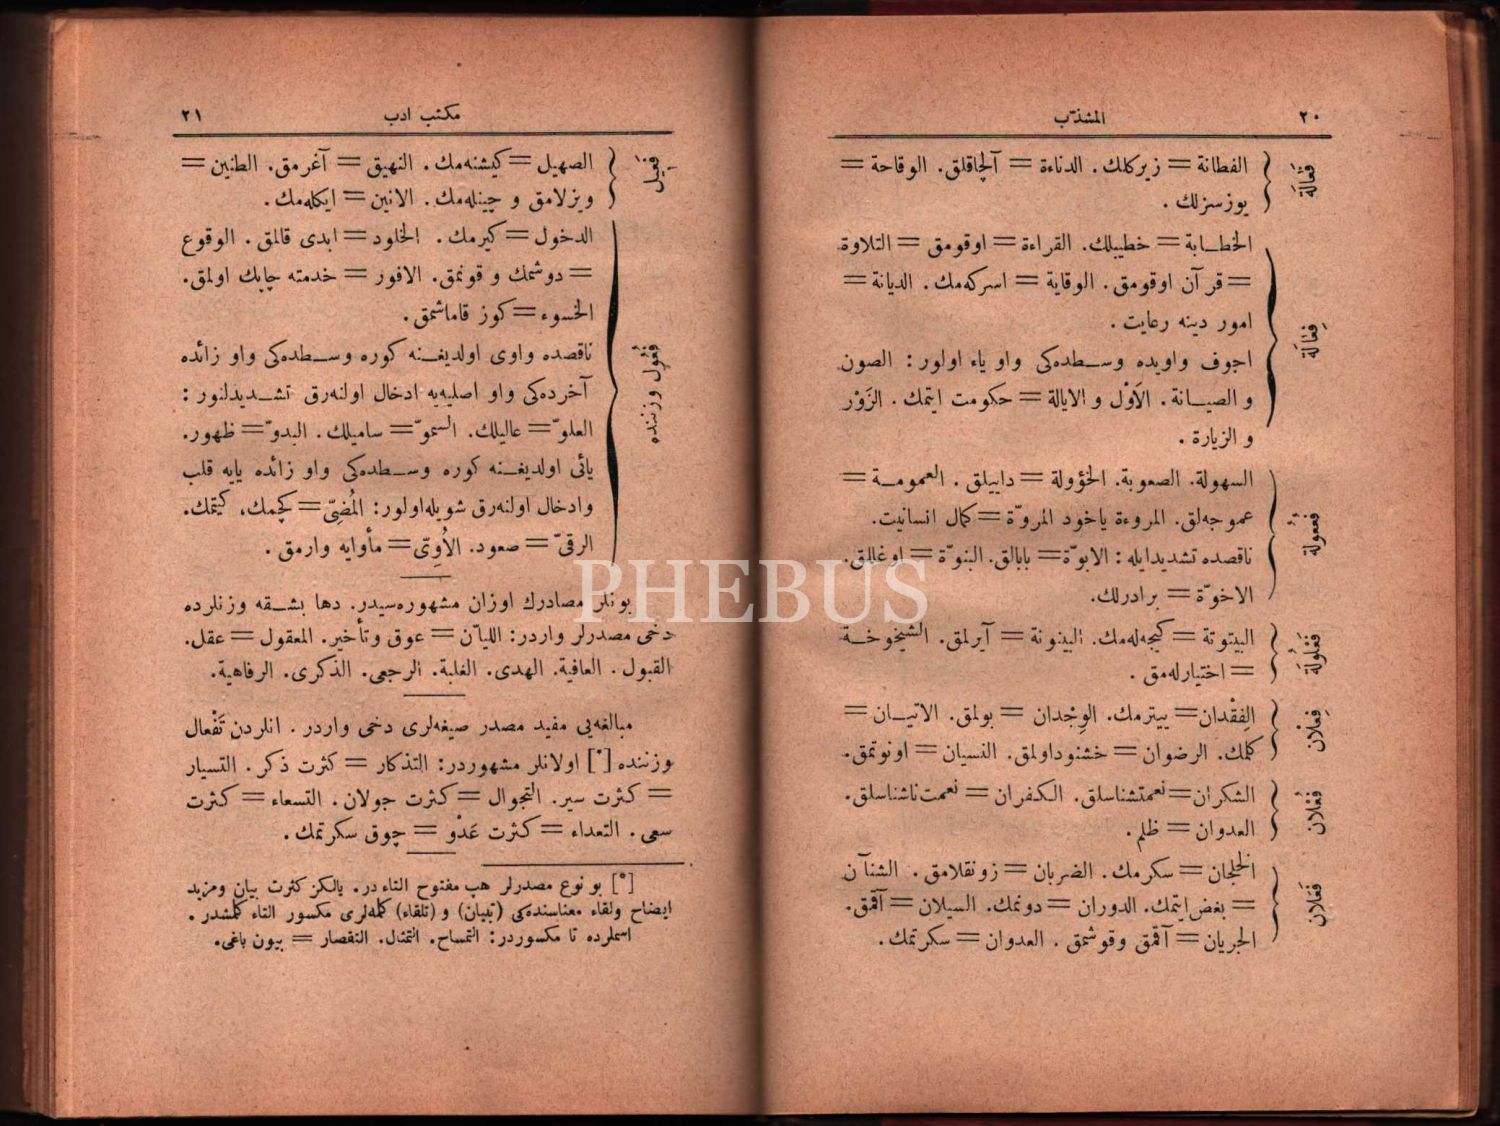 ٢٠
المشذّب
فَعَالَة
الفطانة = زیركلك. الدناءة = آلچاقلق. الوقاحة =
یوزسزلك .
فِعَالَة
الخطابة = خطیبلك. القراءة = اوقومق = التلاوة
= قرآن اوقومق. الوقایة = اسركه‌مك. الدیانة =
امور دینه رعایت .
اجوف واویده وسطده‌كی واو یاء اولور : الصون
و الصیانة . الاَوْل و الایالة = حكومت ایتمك. الزَوْر
و الزیارة .
فُعولة
السهولة. الصعوبة. الخؤولة = داییلق . العمومة =
عموجه‌لق. المروءة یاخود المروّة = كمال انسانیت.
ناقصده تشدیدایله : الابوّة = بابالق. البنوّة = اوغللق.
الاخوّة = برادرلك.
فَعْلُولَة
البیتوتة = كیجه‌له‌مك. البینونة = آیرلمق. الشیخوخة
= اختیارله‌مق .
فِعْلان
الفِقْدان = ییترمك. الوِجْدان = بولمق. الاتیان =
كلمك. الرضوان = خشنوداولمق. النسیان = اونوتمق.
فُعْلان
الشكران = نعمتشناسلق. الكفران = نعمت‌ناشناسلق.
العدوان = ظلم.
فَعَلان
الخلجان = سكرمك. الضربان = زونقلامق. الشنآن
= بغض‌ایتمك. الدوران = دونمك. السیلان = آقمق.
الجریان = آقمق وقوشمق . العدوان = سكرتمك.
مكتب ادب
٢١
فَعِیل
الصهیل = كیشنه‌مك. النهیق = آغرمق. الطنین =
ویزلامق و چینله‌مك. الانین = ایكله‌مك.
فُعُول وزننده
الدخول = كیرمك. الخلود = ابدی قالمق. الوقوع
= دوشمك و قونمق. الافور = خدمته چابك اولمق.
الخسوء = كوز قاماشمق.
ناقصده واوی اولدیغنه كوره وسطده‌كی واو زائده
آخرده‌كی واو اصلیه‌یه ادخال اولنه‌رق تشدیدلنور :
العلوّ = عالیلك. السموّ = سامیلك. البدوّ = ظهور.
یائی اولدیغنه كوره وسطده‌كی واو زائده یایه قلب
وادخال اولنه‌رق شویله‌اولور: المُضِیّ = كچمك، كیتمك.
الرقیّ = صعود. الاُوِیّ = مأوایه وارمق .
بونلر مصادرك اوزان مشهوره‌سیدر. دها بشقه وزنلرده
دخی مصدرلر واردر: اللیاّن = عوق وتأخیر. المعقول = عقل.
القبول . العافیة. الهدی. الغلبة. الرجعی. الذكری. الرفاهیة.
مبالغه‌یی مفید مصدر صیغه‌لری دخی واردر . انلردن تَفْعال
وزننده [*] اولانلر مشهوردر: التذكار = كثرت ذكر. التسیار
= كثرت سیر. التجوال = كثرت جولان. التسعاء = كثرت
سعی. التعداء = كثرت عَدْو = چوق سكرتمك.
[*] بو نوع مصدرلر هپ مفتوح التاءدر. یالكز كثرت بیان ومزید
ایضاح ولقاء معناسنده‌كی (تبیان) و (تلقاء) كلمه‌لری مكسور التاء كلمشدر .
اسملرده تا مكسوردر: التمساح. التمثال. التقصار = بیون باغی.
PHEBUS